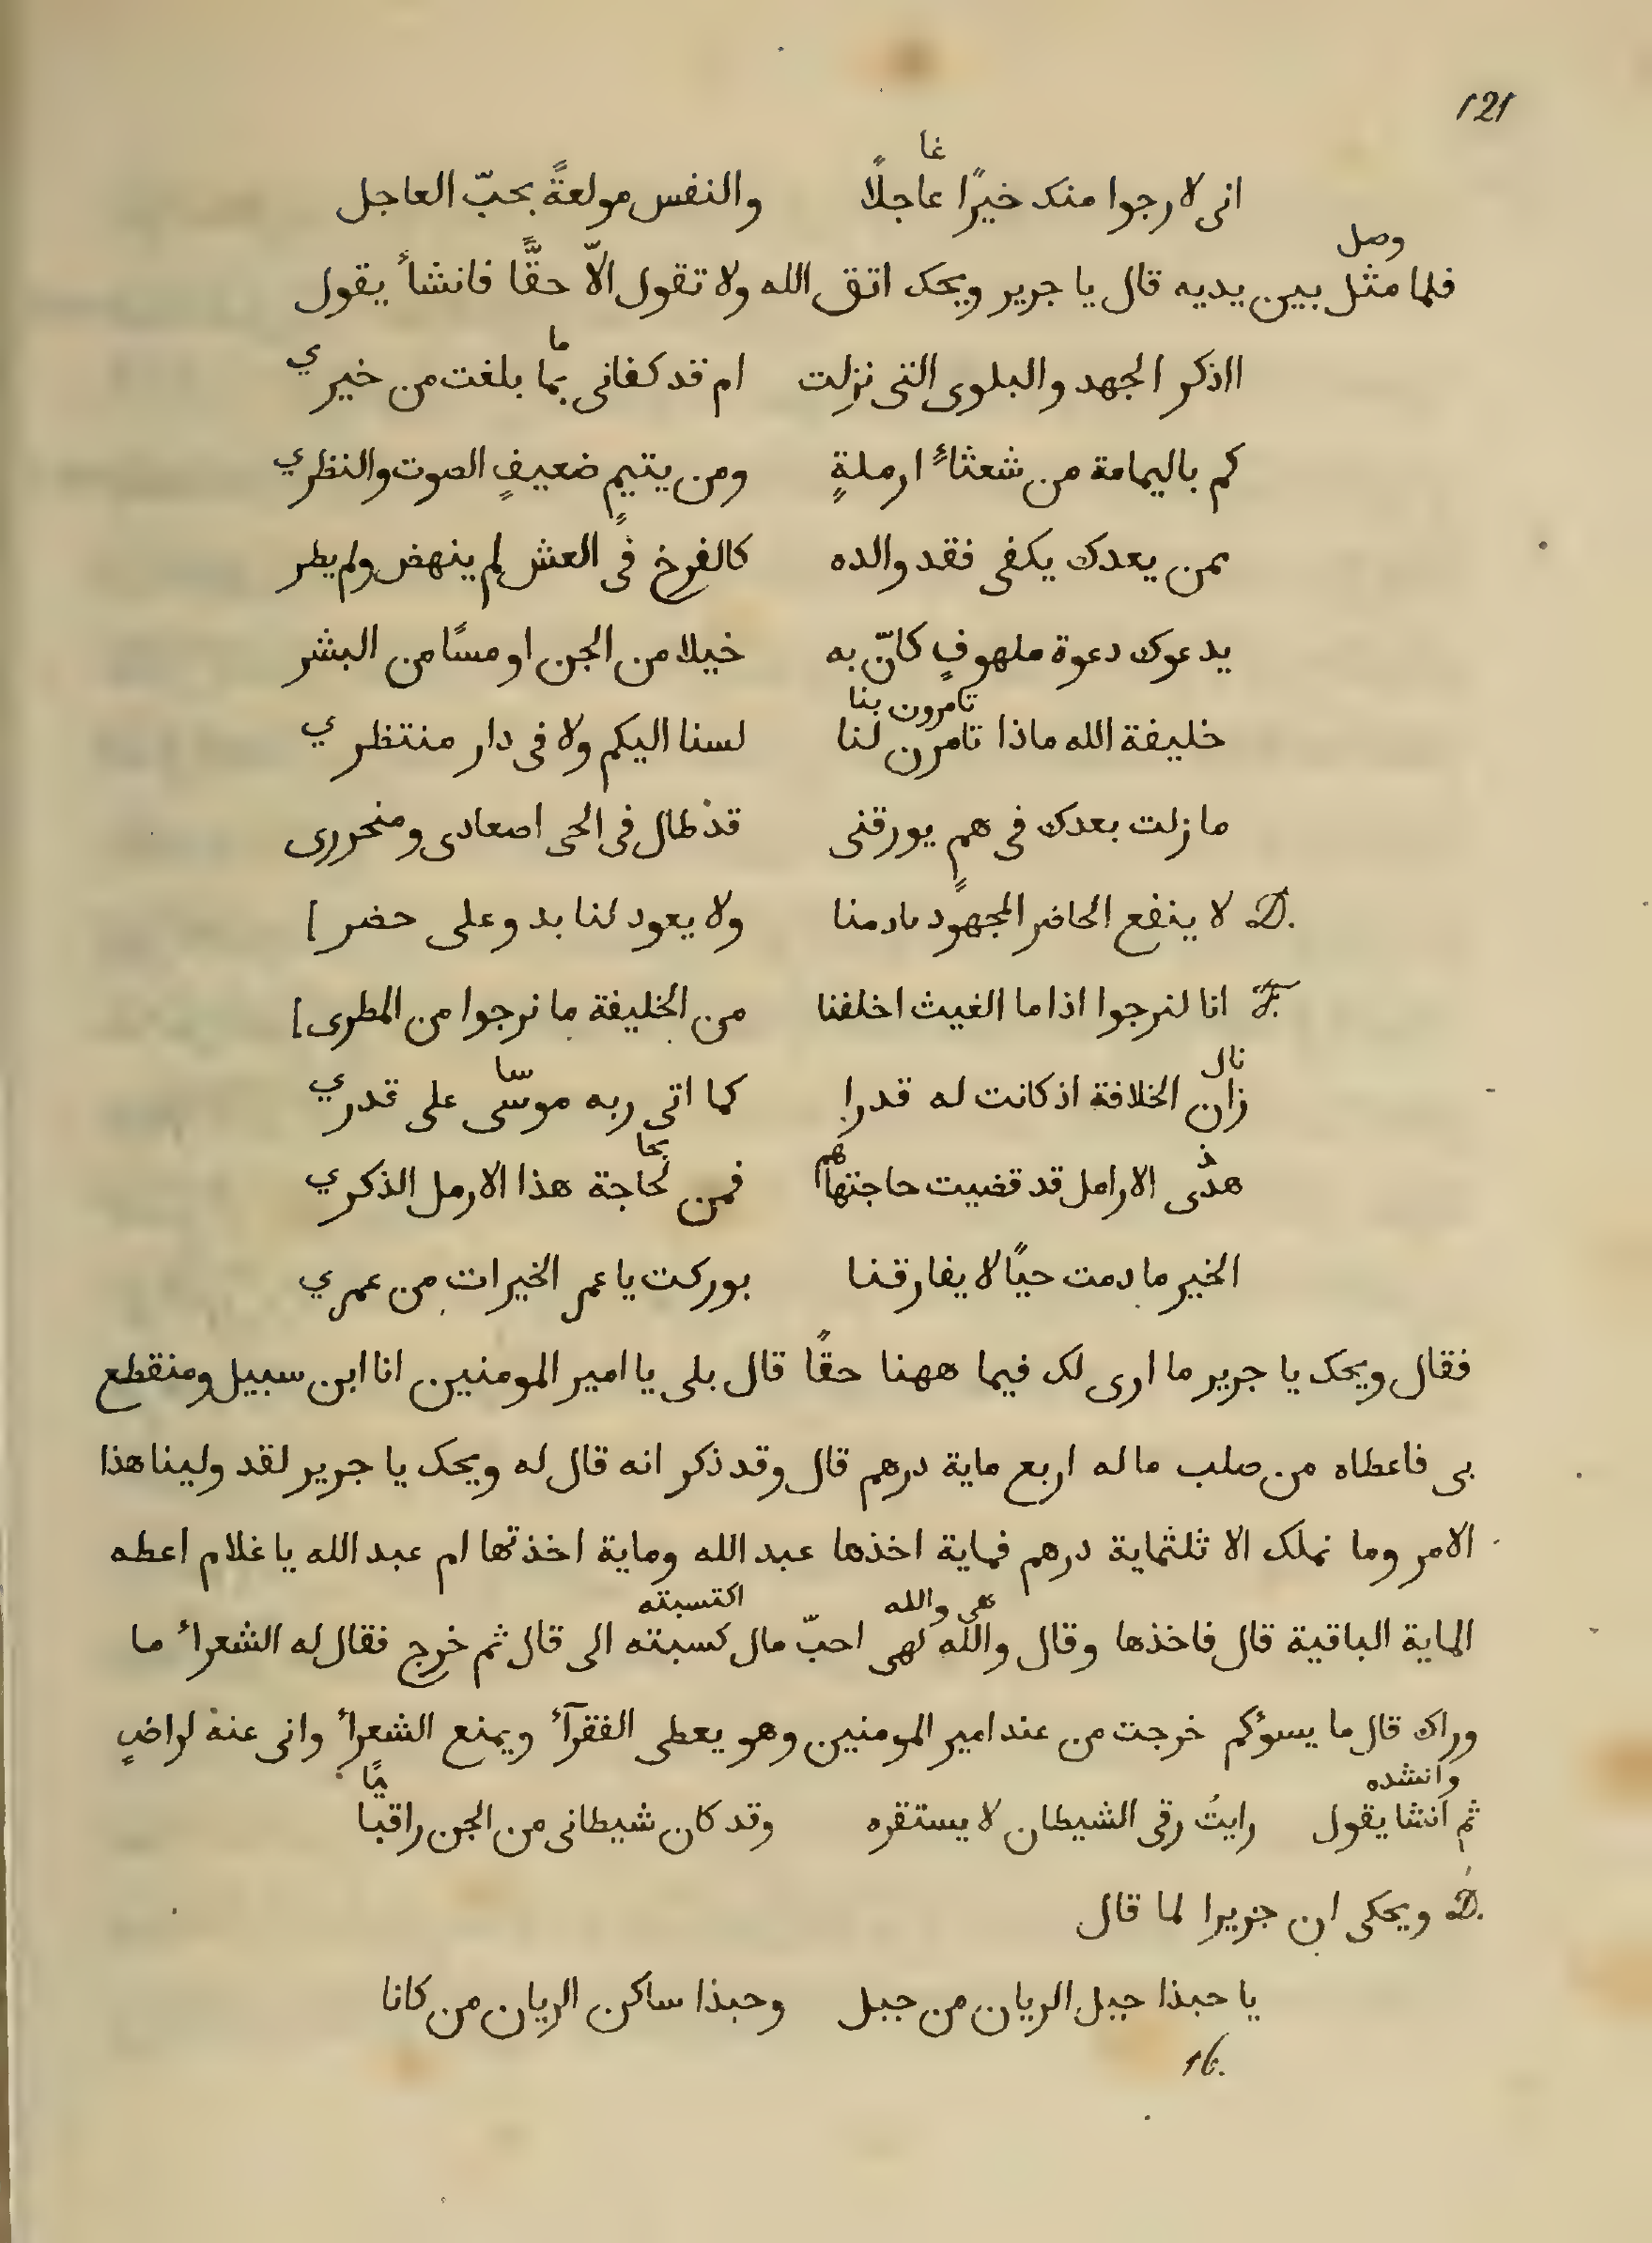 121
غا
انى لارجوا منك خيرًا عاجلًا والنفس مولعةً بحبّ العاجل
وصل
فلما مثل بين يديه قال يا جرير ويحك اتق الله ولا تقول الّا حقًّا فانشأ يقول
ما
ااذكر الجهد والبلوى التى نزلت ام قد كفانى بما بلغت من خيرى
كم باليمامة من شعثاءٍ ارملةٍ ومن يتيمٍ ضعيفٍ الصوت والنظرى
بمن يعدك يكفى فقد والده كالفرخ فى العش لم ينهض ولم يطر
يدعوك دعوة ملهوفٍ كانّ به خيلا من الجن او مسًا من البشر
تامرون بنا
خليفة الله ماذا تامرن لنا لسنا اليكم ولا فى دار منتظرى
ما زلت بعدك فى همٍ يورقنى قد طال فى الحى اصعادى ومنحررى
D. لا ينفع الحاضر المجهود بادمنا ولا يعود لنا بد وعلى حضر ]
F. انا لنرجوا اذا ما الغيث اخلفنا من الخليفة ما نرجوا من المطرى ]
نال سا
زان الخلافة اذ كانت له قدرا كما اتى ربه موسّى على قدرى
ذ هم بحا
هذى الارامل قد قضيت حاجتها فمن لحاجة هذا الارمل الذكرى
الخير ما دمت حيًا لا يفارقنا بوركت يا عمر الخيرات من عمرى
فقال ويحك يا جرير ما ارى لك فيما ههنا حقًا قال بلى يا امير المومنين انا ابن سبيل ومنقطع
بى فاعطاه من صلب ماله اربع ماية درهم قال وقد ذكر انه قال له ويحك يا جرير لقد ولينا هذا
الامر وما نملك الا ثلثماية درهم فماية اخذها عبد الله وماية اخذتها ام عبد الله يا غلام اعطه
هى والله اكتسبته
الماية الباقية قال فاخذها وقال والله لهى احبّ مال كسبته الى قال ثم خرج فقال له الشعرأ ما
وراك قال ما يسؤكم خرجت من عند امير المومنين وهو يعطى الفقرآء ويمنع الشعرأ وانى عنه لراضٍ
وانشده يًا
ثم انشا يقول رايتُ رقى الشيطان لا يستقره وقد كان شيطانى من الجن راقبًا
D. ويحكى ان جريرا لما قال
يا حبذا جبل الريان من جبل وحبذا ساكن الريان من كانا
16.